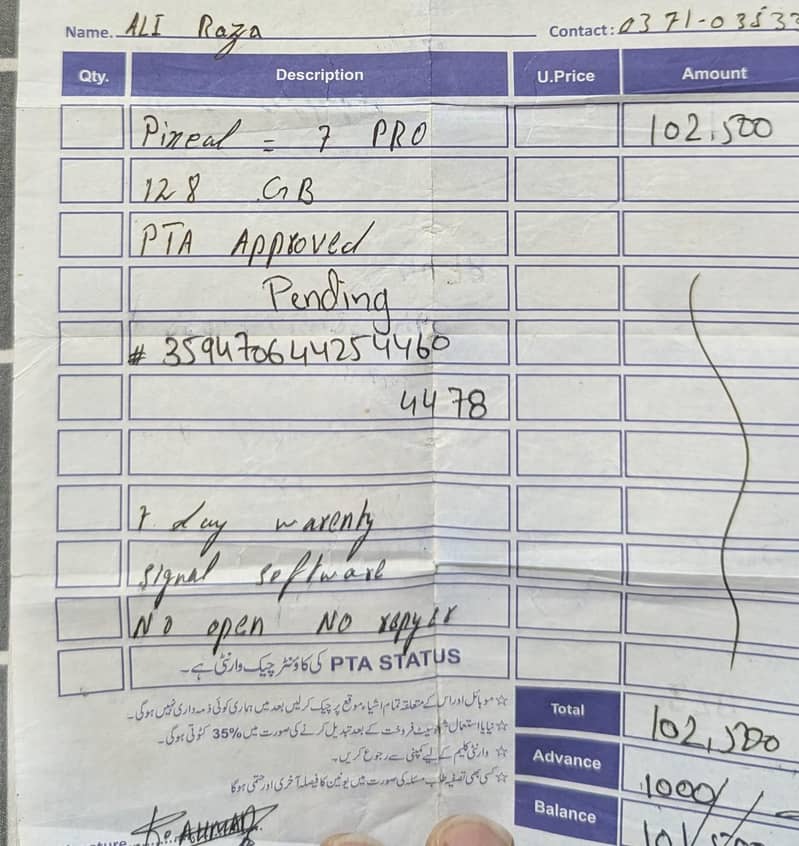 Name. ALI Raza Contact: 0371-03533
Qty. Description U.Price Amount
Pixeal = 7 PRO 102,500
128 GB
PTA Approved
Pending
# 359470644254460
4478
7 day warenty
signal software
No open No repyer
PTA STATUS کی کاؤنٹر چیک وارنٹی ہے۔
☆ موبائل اور اس کے متعلقہ تمام اشیاء موقع پر چیک کرلیں بعد میں ہماری کوئی ذمہ داری نہیں ہوگی۔
☆ نیا یا استعمال شدہ سیٹ فروخت کے بعد تبدیل کرنے کی صورت میں %35 کٹوتی ہوگی۔
☆ وارنٹی کلیم کے لیے کمپنی سے رجوع کریں۔
☆ کسی بھی تصفیہ طلب مسئلہ کی صورت میں یونین کا فیصلہ آخری اور حتمی ہوگا
Total 102,500
Advance 1000/
Balance
AHMAD